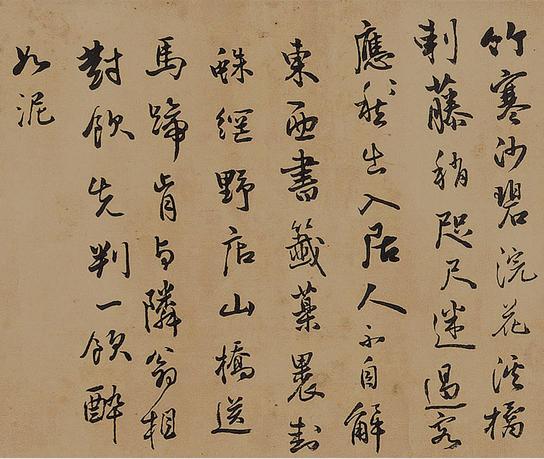 竹寒沙碧浣花溪橘
刺藤梢咫尺迷過客
應愁出入居人不自解
東西書籤藥裹封
蛛網野店山橋送
馬蹄肯与隣翁相
對飲先判一飲醉
如泥